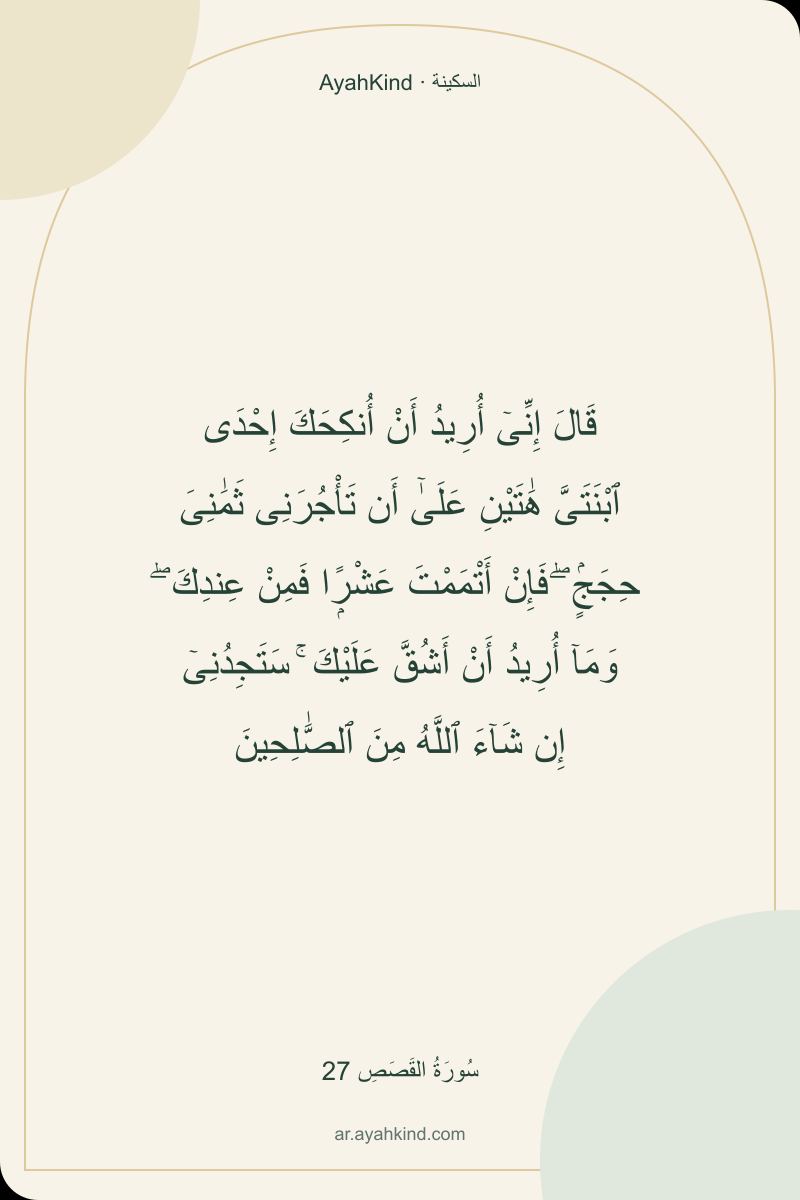 AyahKind · السكينة
قَالَ إِنِّىٓ أُرِيدُ أَنْ أُنكِحَكَ إِحْدَى
ٱبْنَتَىَّ هَٰتَيْنِ عَلَىٰٓ أَن تَأْجُرَنِى ثَمَٰنِىَ
حِجَجٍۢ ۖ فَإِنْ أَتْمَمْتَ عَشْرًۭا فَمِنْ عِندِكَ ۖ
وَمَآ أُرِيدُ أَنْ أَشُقَّ عَلَيْكَ ۚ سَتَجِدُنِىٓ
إِن شَآءَ ٱللَّهُ مِنَ ٱلصَّٰلِحِينَ
سُورَةُ القَصَصِ 27
ar.ayahkind.com